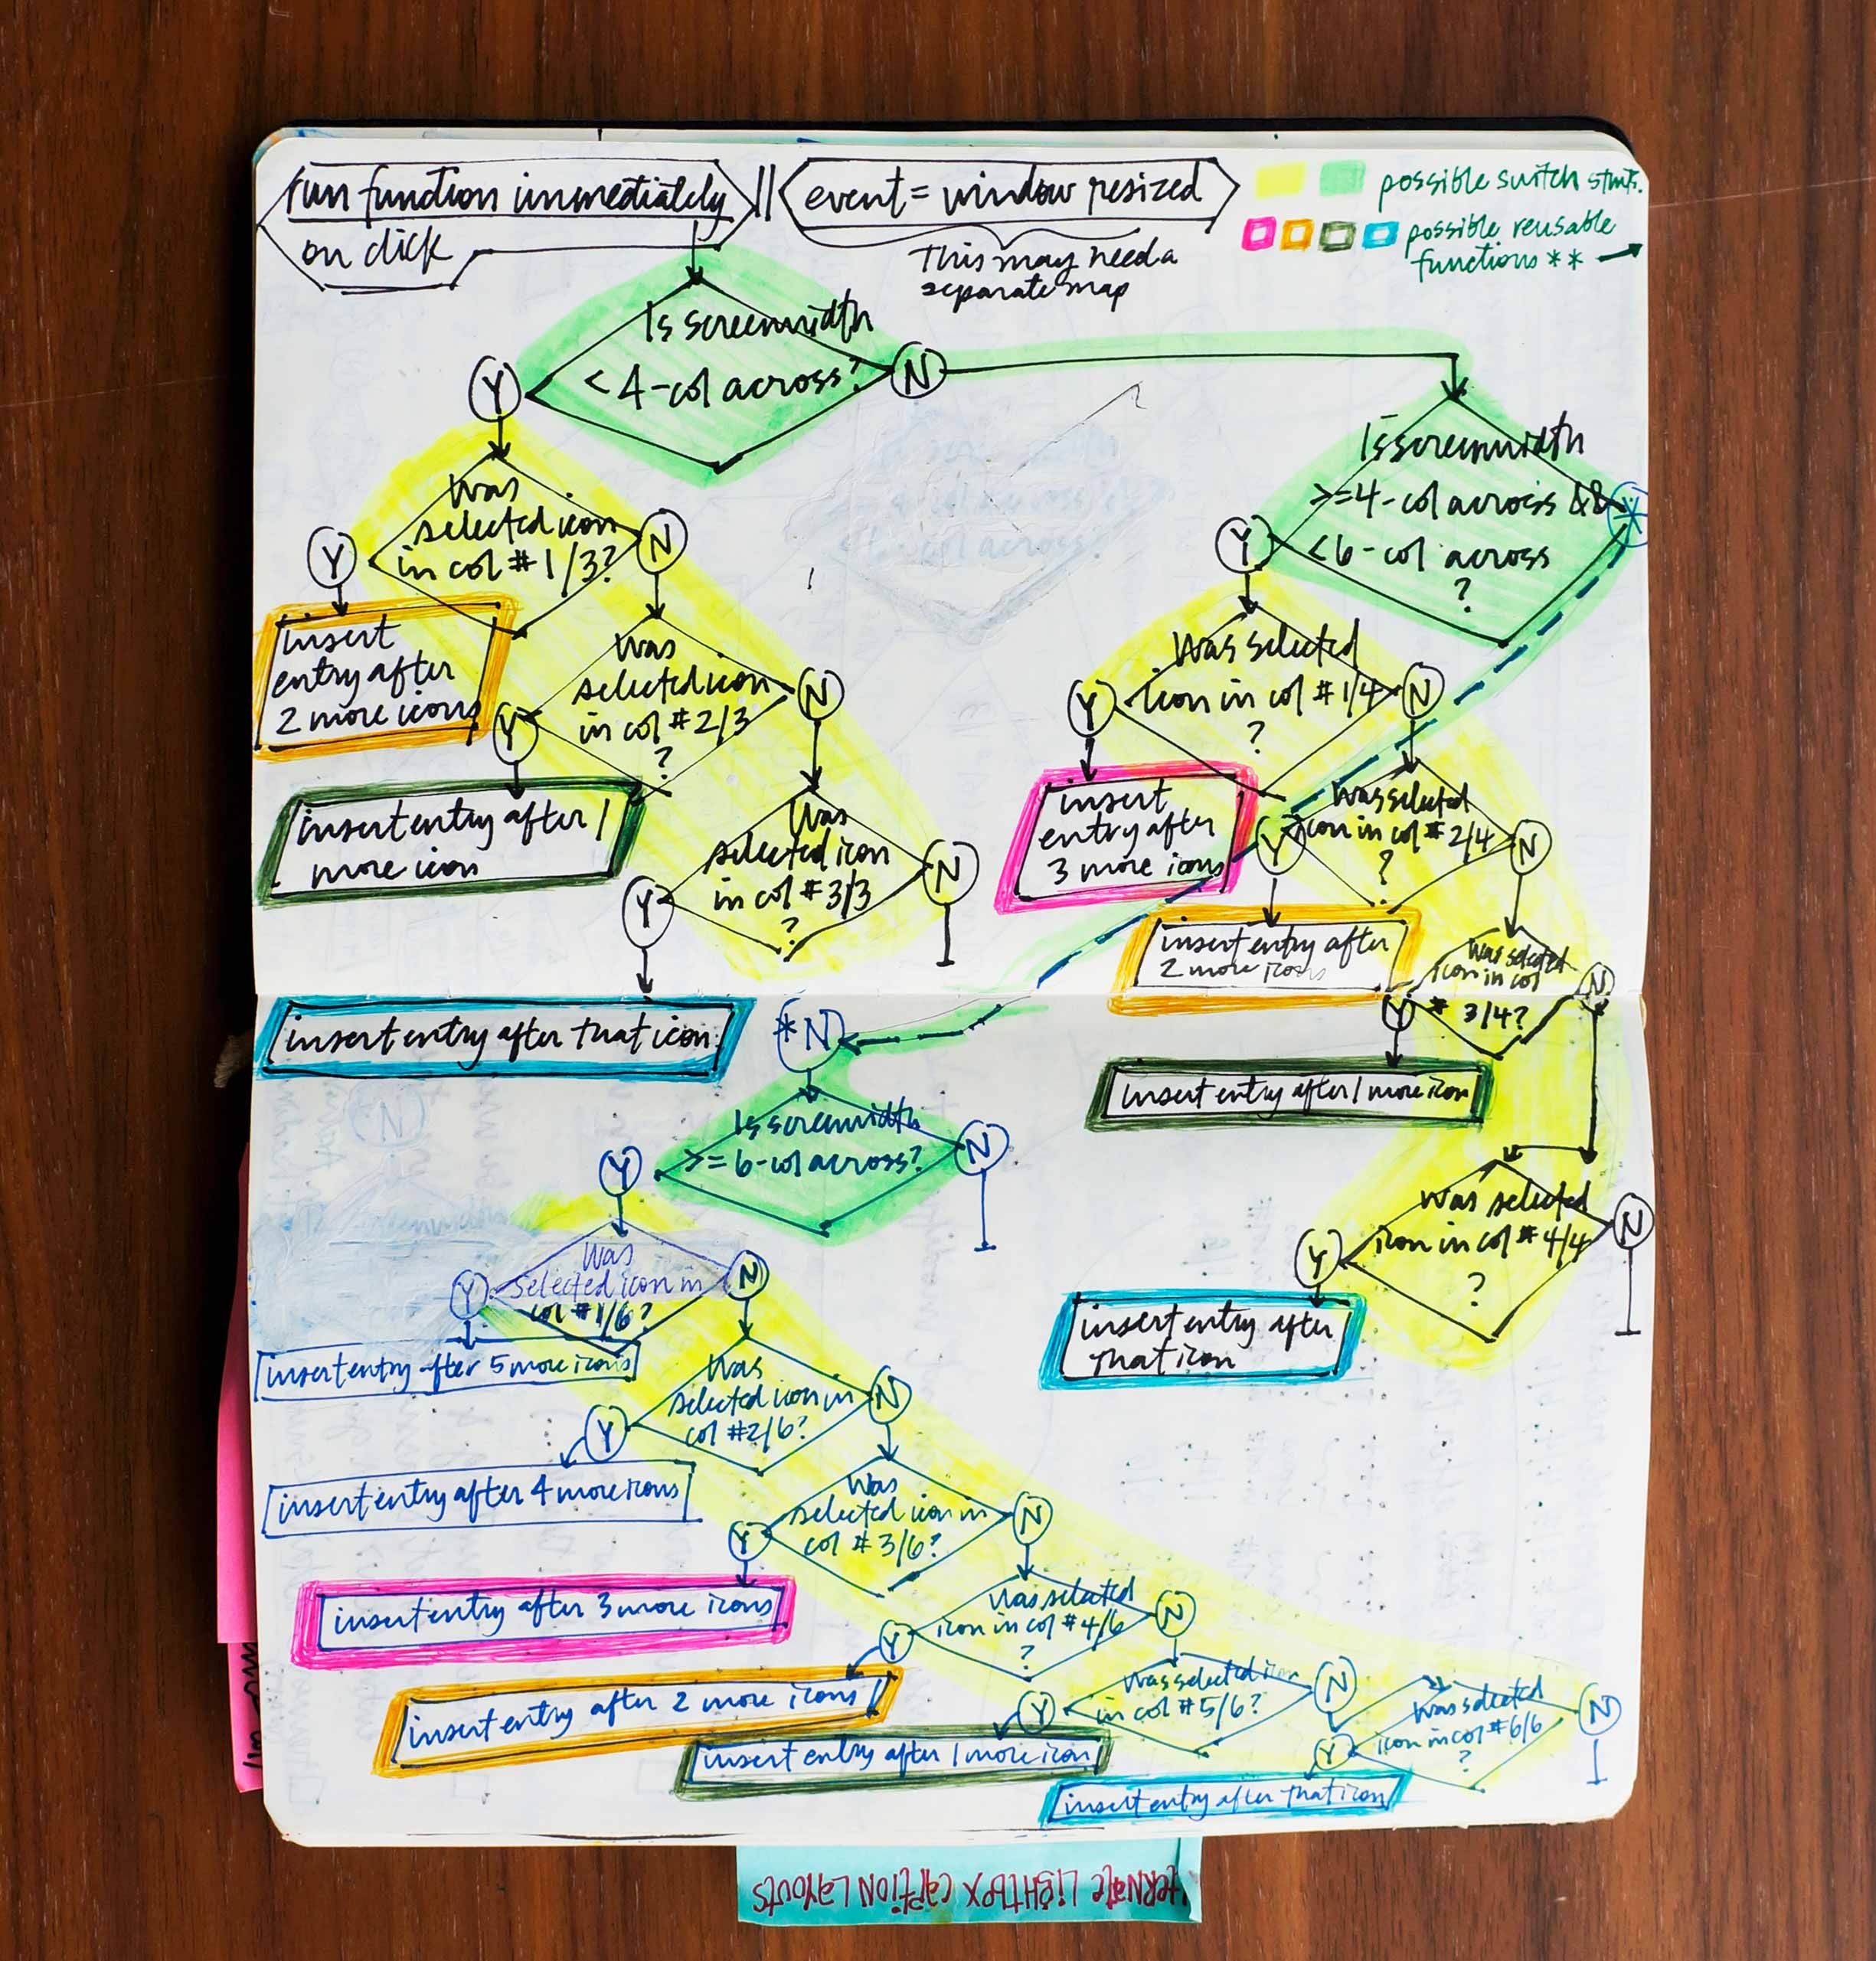 run function immediately
on click
||
event = window resized
This may need a
separate map
possible switch stmts.
possible reusable
functions **
Is screenwidth
< 4-col across?
Y
N
Was
selected icon
in col #1/3?
Y
N
insert
entry after
2 more icons
Was
selected icon
in col #2/3
?
Y
N
insert entry after 1
more icon
Was
selected icon
in col #3/3
?
Y
N
insert entry after that icon
Is screenwidth
>=4-col across &&
<6-col across
?
Y
*
Was selected
icon in col #1/4
?
Y
N
insert
entry after
3 more icons
Was selected
icon in col #2/4
?
Y
N
insert entry after
2 more icons
Was selected
icon in col
#3/4?
Y
N
insert entry after 1 more icon
Was selected
icon in col #4/4
?
Y
N
insert entry after
that icon
*N
Is screenwidth
>=6-col across?
Y
N
Was
selected icon in
col #1/6?
Y
N
insert entry after 5 more icons
Was
selected icon in
col #2/6?
Y
N
insert entry after 4 more icons
Was
selected icon in
col #3/6?
Y
N
insert entry after 3 more icons
Was selected
icon in col #4/6
?
Y
N
insert entry after 2 more icons
Was selected icon
in col #5/6?
Y
N
insert entry after 1 more icon
Was selected
icon in col #6/6
?
Y
N
insert entry after that icon
LIGHTBOX CAPTION LAYOUTS